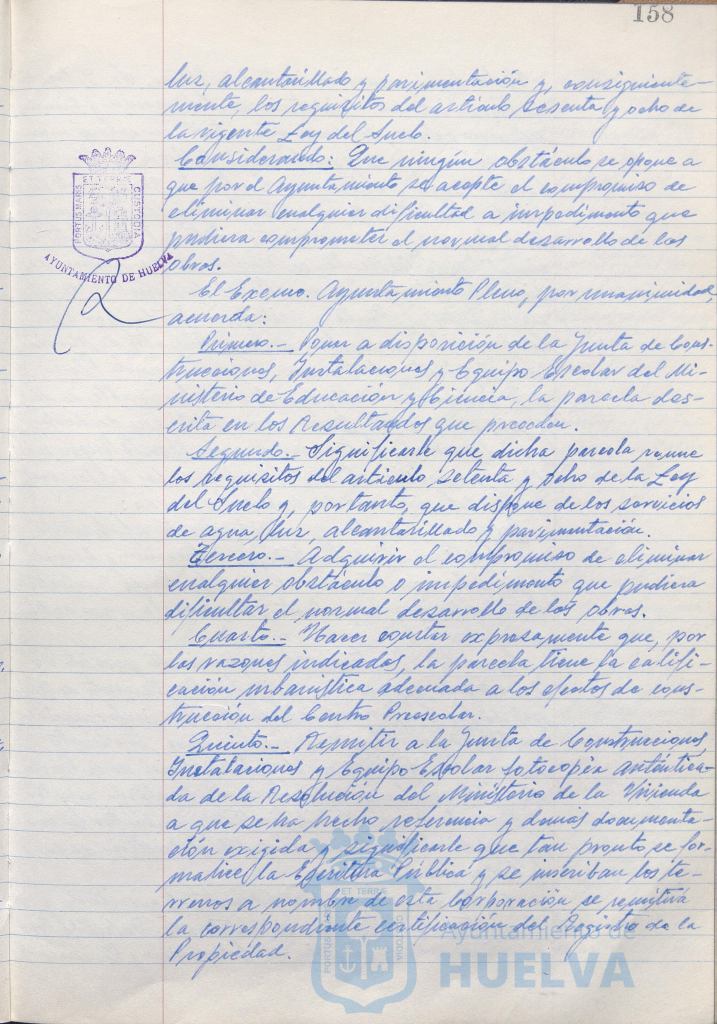 158
luz, alcantarillado y pavimentación y, consiguiente-
mente, los requisitos del artículo sesenta y ocho de
la vigente Ley del Suelo.
Considerando: Que ningún obstáculo se opone a
que por el Ayuntamiento, se acepte el compromiso de
eliminar cualquier dificultad a impedimento que
pudiera comprometer el normal desarrollo de las
obras.
El Excmo. Ayuntamiento Pleno, por unanimidad,
acuerda:
Primero.- Poner a disposición de la Junta de Cons-
trucciones, Instalaciones y Equipo Escolar del Mi-
nisterio de Educación y Ciencia, la parcela des-
crita en los Resultandos que preceden.
Segundo.- Significarle que dicha parcela reune
los requisitos del artículo setenta y ocho de la Ley
del Suelo y, por tanto, que dispone de los servicios
de agua, luz, alcantarillado y pavimentación.
Tercero.- Adquirir el compromiso de eliminar
cualquier obstáculo o impedimento que pudiera
dificultar el normal desarrollo de las obras.
Cuarto.- Hacer constar expresamente que, por
las razones indicadas, la parcela tiene la califi-
cación urbanística adecuada a los efectos de cons-
trucción del Centro Preescolar.
Quinto.- Remitir a la Junta de Construcciones,
Instalaciones y Equipo Escolar fotocopia auténtica-
da de la Resolución del Ministerio de la Vivienda
a que se ha hecho referencia y demás documenta-
ción exigida y significarle que tan pronto se for-
malice la Escritura Pública y se inscriban los te-
rrenos a nombre de esta Corporación se remitirá
la correspondiente certificación del Registro de la
Propiedad.
PORTUS MARIS ET TERRE CUSTODIA
AYUNTAMIENTO DE HUELVA
PORTUS MARIS ET TERRE CUSTODIA
Ayuntamiento de
HUELVA